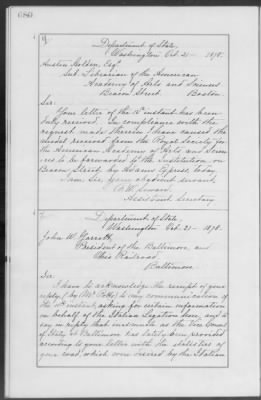 680
Department of State,
Washington Oct. 21 – 1878.
Austin Holden, Esqr.
Sub. Librarian of the American
Academy of Arts and Sciences
Beacon Street. Boston
Sir:
Your letter of the instant has been
duly received. In compliance with the
request made therein I have caused the
medal received from the Royal Society for
the American Academy of Arts and Scien-
ces to be forwarded to the Institution on
Beacon Street by Adams Express, today.
I am Sir, Your obedient servant,
F. W. Seward.
Assistant Secretary
Department of State,
Washington Oct. 21 – 1878.
John W. Garrett,
President of the Baltimore and
Ohio Railroad,
Baltimore
Sir:
I have to acknowledge the receipt of your
reply (by Mr. ) to my communication of
the instant, asking for certain information
on behalf of the Italian Legation here, and to
say in reply that inasmuch as the Vice Consul
of Italy at Baltimore has lately been provided
according to your letter with the statistics of
your road, which were desired by the Italian